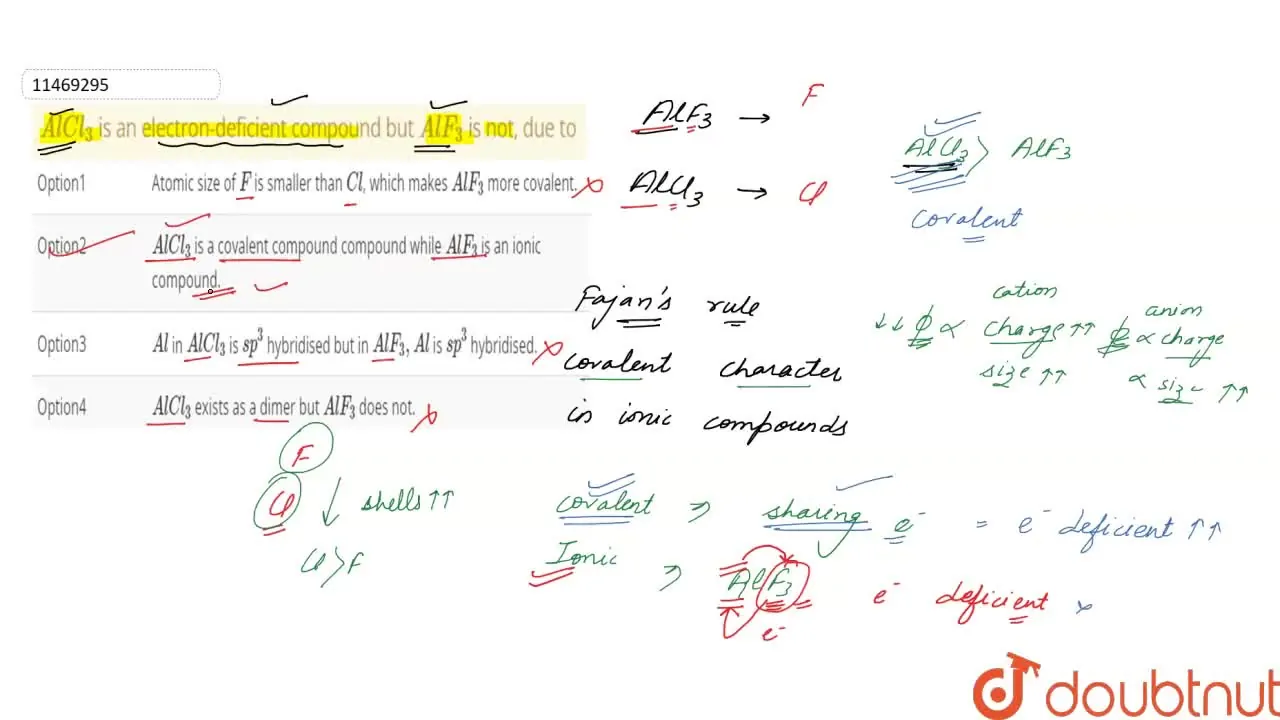 11469295
AlCl3 is an electron-deficient compound but AlF3 is not, due to
Option1 Atomic size of F is smaller than Cl, which makes AlF3 more covalent.
Option2 AlCl3 is a covalent compound compound while AlF3 is an ionic
compound.
Option3 Al in AlCl3 is sp³ hybridised but in AlF3, Al is sp³ hybridised.
Option4 AlCl3 exists as a dimer but AlF3 does not.
AlF3 → F
AlCl3 → Cl
AlCl3 > AlF3
covalent
Fajan's rule
covalent character
in ionic compounds
cation
↓↓ ϕ ∝ charge ↑↑
size ↑↑
anion
ϕ ∝ charge
∝ size ↑↑
F
Cl ↓ shells ↑↑
Cl > F
covalent ⇒ sharing e⁻ = e⁻ deficient ↑↑
Ionic ⇒ AlF3 e⁻ deficient ×
e⁻
doubtnut